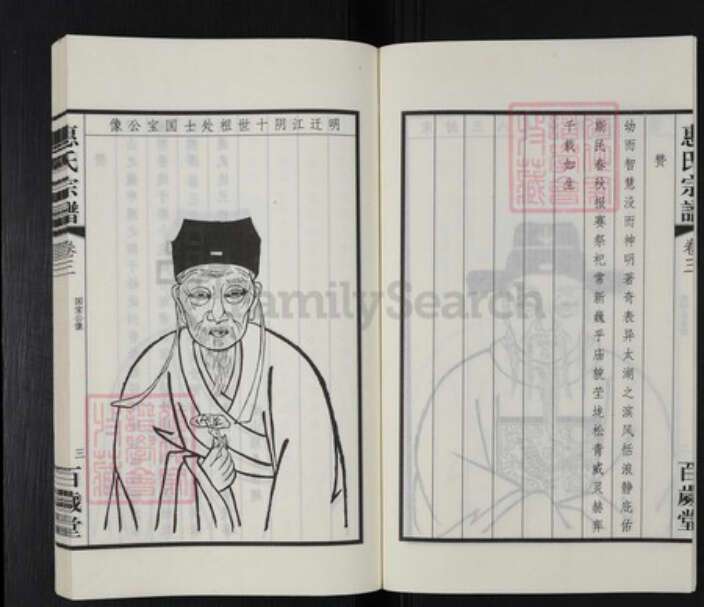 惠氏宗譜
卷三
百歲堂
赞
幼而智慧没而神明著奇表异太湖之滨风恬浪静庇佑
斯民春秋报赛祭祀常新巍乎庙貌茔垅松青威灵赫奕
千载如生
明迁江阴十世祖处士国宝公像
惠氏宗譜
卷三
国宝公像
三
百歲堂
FamilySearch